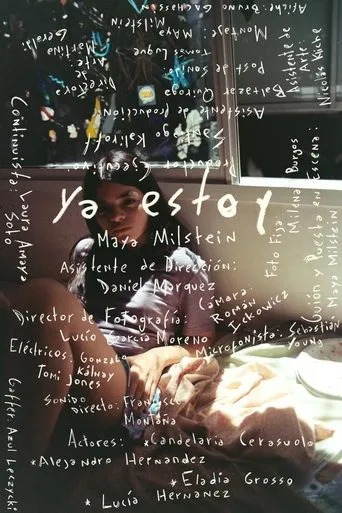 Ya estoy
Maya Milstein
Asistente de Dirección:
Daniel Marquez
Director de Fotografía:
Lucío García Moreno
Cámara:
Román
Eléctricos: Gonzalo
Kálnay
Tomi Jones
Microfonista: Sebastián
Young
Sonido
Directo: Francisco
Montana
Actores: *Candelaria Cerasuolo
*Alejandro Hernandez
*Eladia Grosso
*Lucía Hernanez
Productor Ejecutivo:
Santiago Kalikoff
Asistente de producción:
Baltazar Quiroga
Post de sonido:
Tomas Luque
Directora
de
Arte:
Martina
Montaje: Maya
Milstein
Afiche: Bruno
Asistente de
Arte:
Nicolás Kuche
Foto Fija:
Milena Burgos
Guión y Puesta en Escena:
Maya Milstein
Continuista: Laura Amaya
Soto
Gaffer: Azul Leczycki